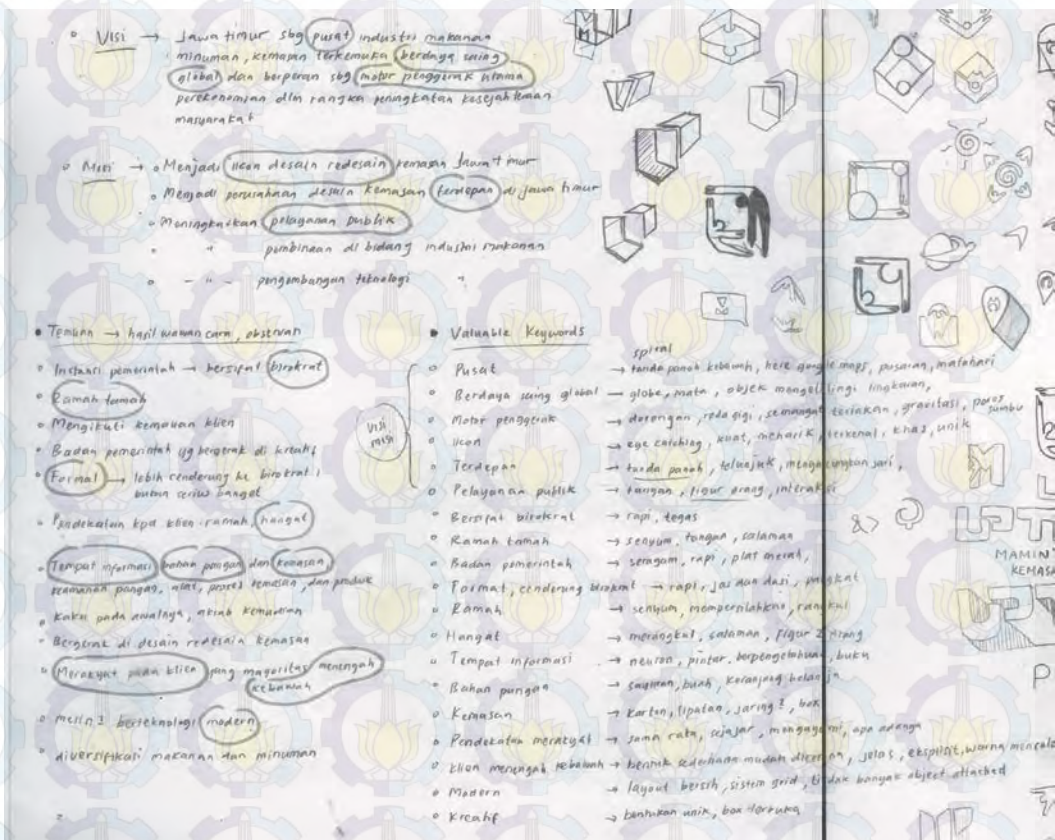 Visi → Jawa timur sbg pusat industri makanan
minuman, kemasan terkemuka berdaya saing
global dan berperan sbg motor penggerak utama
perekonomian dlm rangka peningkatan kesejahteraan
masyarakat
Misi → Menjadi icon desain redesain kemasan Jawa timur
Menjadi perusahaan desain kemasan terdepan di jawa timur
Meningkatkan pelayanan publik
" pembinaan di bidang industri makanan
- " - pengembangan teknologi "
Temuan → hasil wawancara, observasi
Instansi pemerintah → bersifat birokrat
Ramah tamah
Mengikuti kemauan klien
Badan pemerintah yg bergerak di kreatif
Formal → lebih cenderung ke birokrat,
bukan serius banget
Pendekatan kpd klien ramah, hangat
Tempat informasi bahan pangan dan kemasan,
keamanan pangan, alat, proses kemasan, dan produk
Kaku pada awalnya, akrab kemudian
Bergerak di desain redesain kemasan
Merakyat pada klien yang mayoritas menengah
kebawah
mesin2 berteknologi modern
diversifikasi makanan dan minuman
visi
misi
Valuable Keywords
spiral
Pusat → tanda panah kebawah, here google maps, pusaran, matahari
Berdaya saing global → globe, mata, objek mengelilingi lingkaran,
Motor penggerak → dorongan, roda gigi, semangat, teriakan, gravitasi, poros
sumbu
icon → eye catching, kuat, menarik, terkenal, khas, unik
Terdepan → tanda panah, telunjuk, mengacungkan jari,
Pelayanan publik → tangan, figur orang, interaksi
Bersifat birokrat → rapi, tegas
Ramah tamah → senyum, tangan, salaman
Badan pemerintah → seragam, rapi, plat merah,
Formal, cenderung birokrat → rapi, jas dan dasi, pangkat
Ramah → senyum, mempersilahkan, rangkul
Hangat → merangkul, salaman, figur 2 orang
Tempat informasi → neuron, pintar, berpengetahuan, buku
Bahan pangan → sayuran, buah, keranjang belanja
Kemasan → karton, lipatan, jaring2, box
Pendekatan merakyat → sama rata, sejajar, mengayomi, apa adanya
klien menengah kebawah → bentuk sederhana mudah dicerna, jelas, eksplisit, warna
Modern → layout bersih, sistem grid, tidak banyak object attached
Kreatif → bentukan unik, box terbuka
MAMIN
KEMASA
P